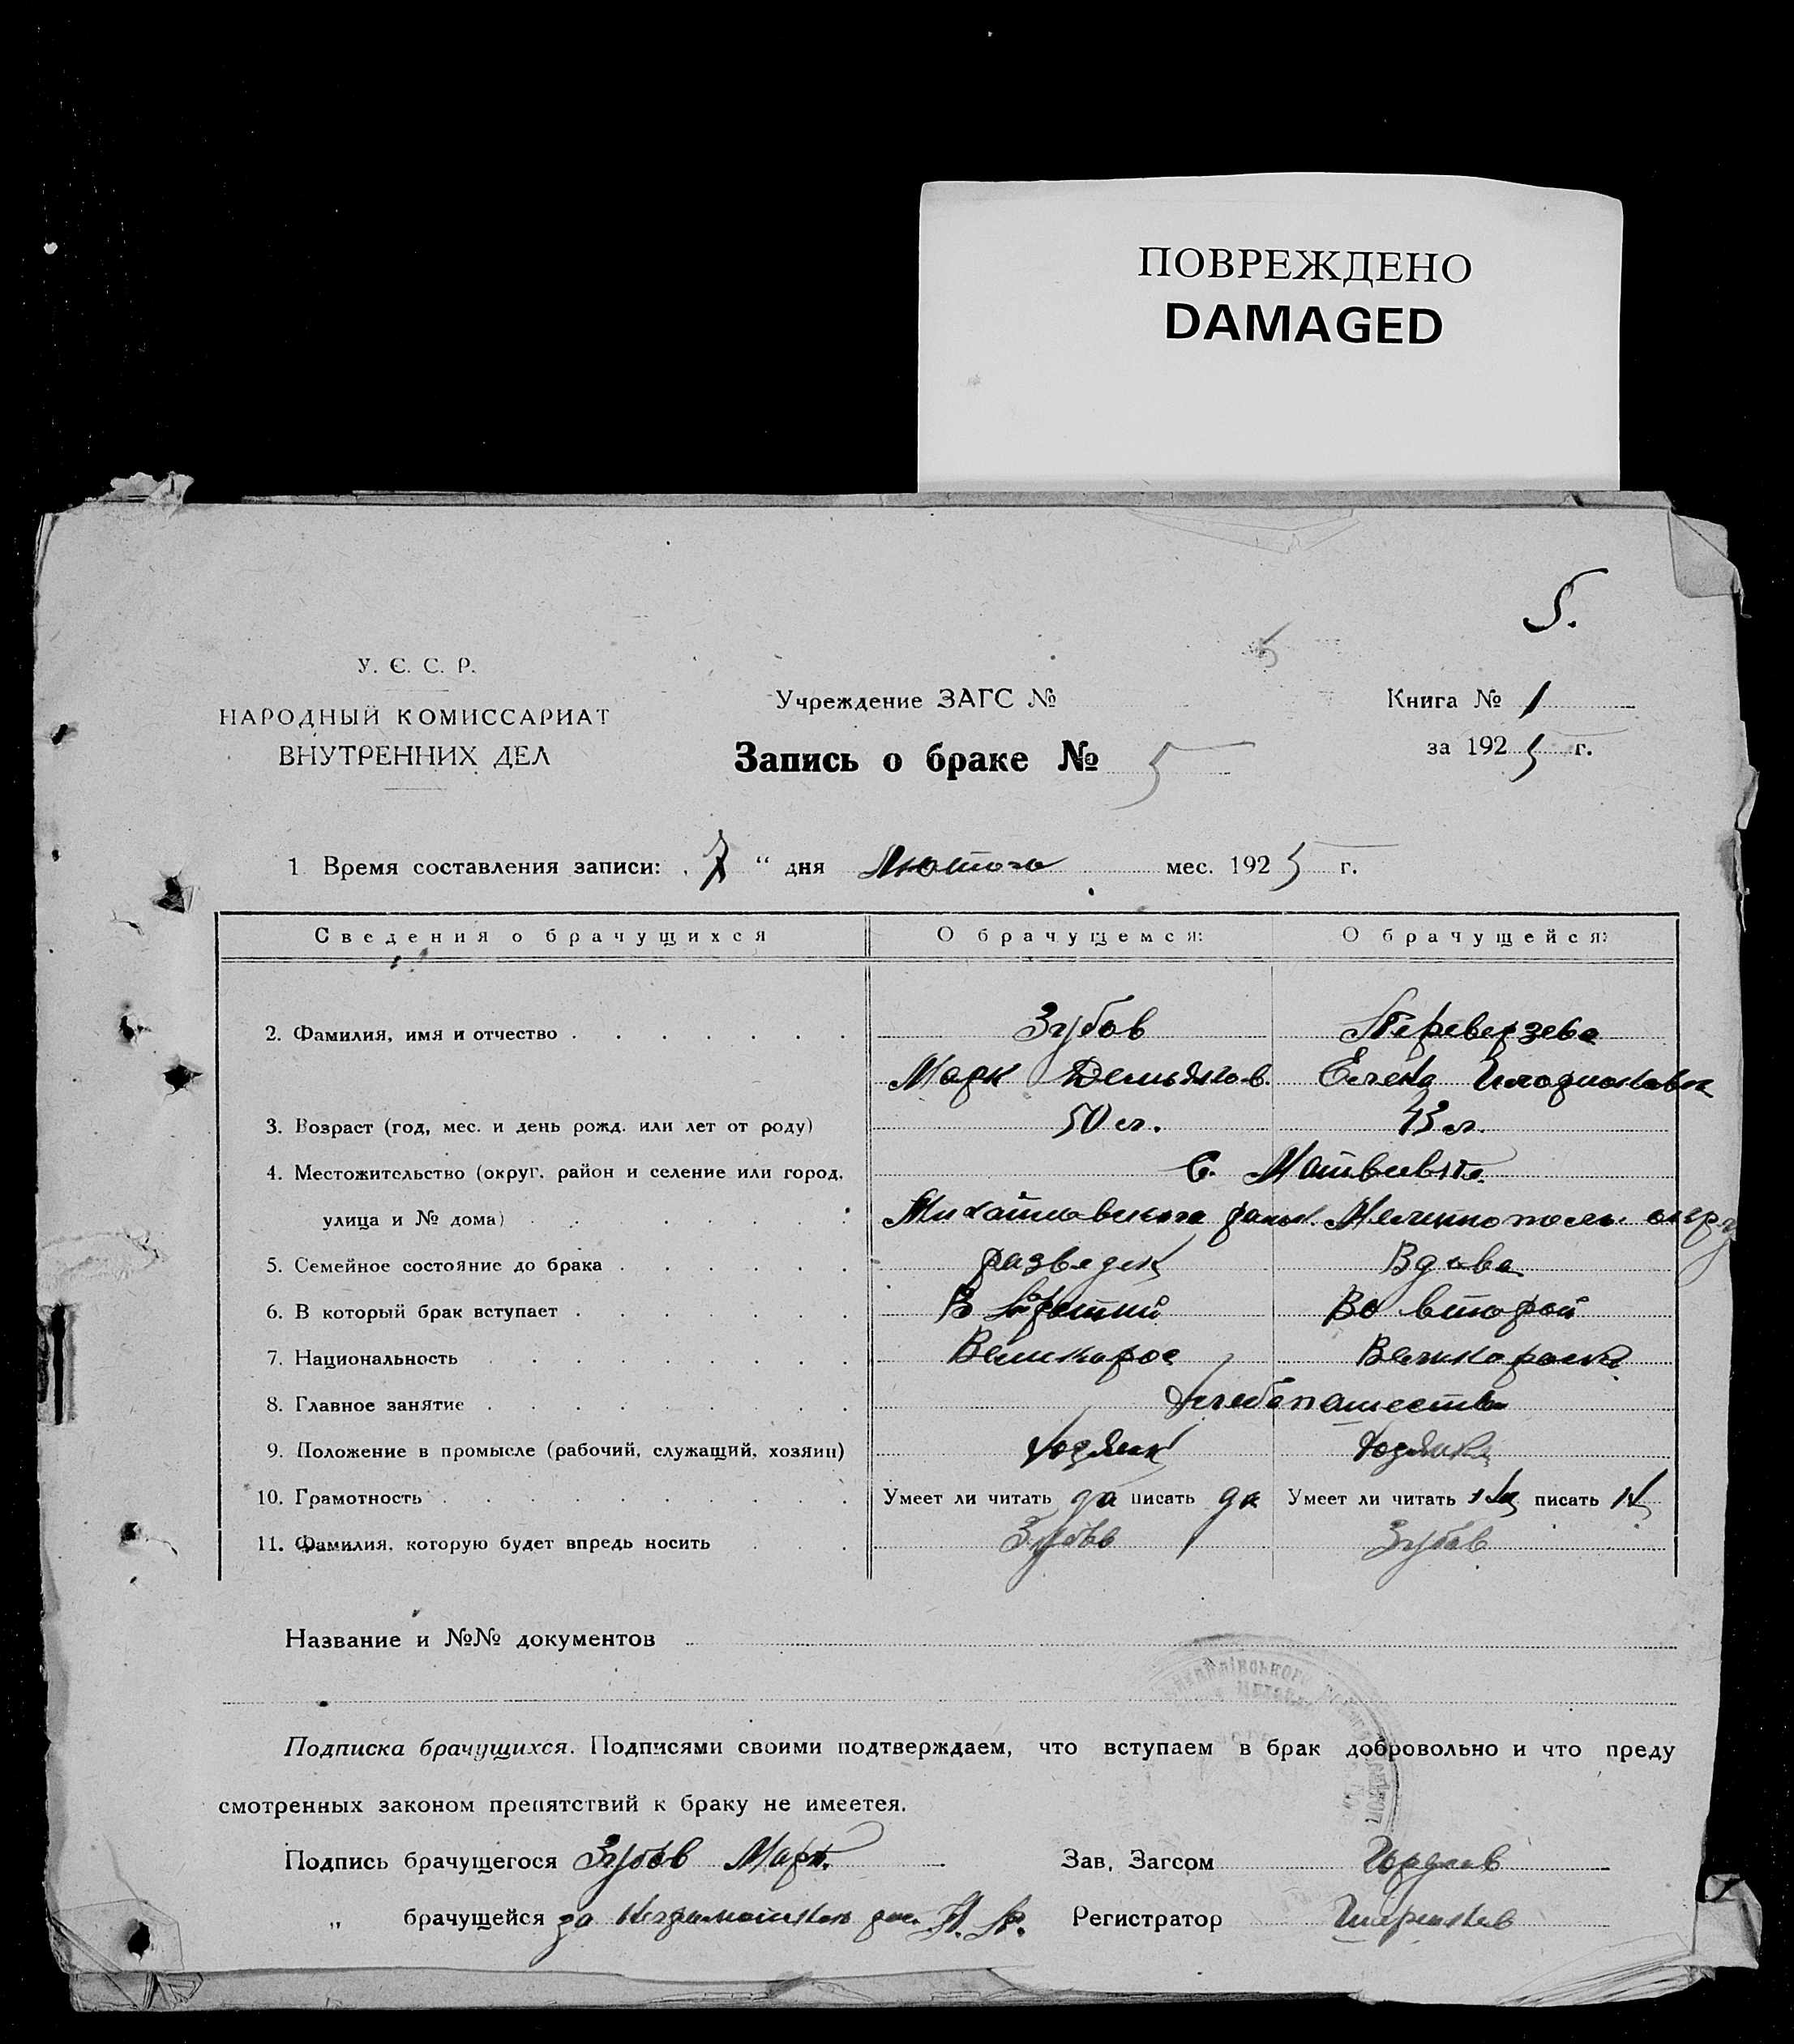 ПОВРЕЖДЕНО
DAMAGED
5.
У. Є. С. Р.
НАРОДНЫЙ КОМИССАРИАТ
ВНУТРЕННИХ ДЕЛ
Учреждение ЗАГС №
Запись о браке № 5
Книга № 1
за 1925 г.
1 Время составления записи: „ 7 “ дня Лютого мес. 1925 г.
Сведения о брачущихся О брачущемся: О брачущейся:
2. Фамилия, имя и отчество Зубов Переверзева
Марк Демьянов. Елена
3. Возраст (год, мес. и день рожд. или лет от роду) 50 л. 43 л.
4. Местожительство (округ, район и селение или город, С. Матвеевка
улица и № дома) Михайловского район. Мелитополь. округ
5. Семейное состояние до брака разведен Вдова
6. В который брак вступает В третий Во второй
7. Национальность Великорос Великороска
8. Главное занятие Хлебопашество
9. Положение в промысле (рабочий, служащий, хозяин) хозяин хозяйка
10. Грамотность Умеет ли читать да писать да Умеет ли читать нет писать нет
11. Фамилия, которую будет впредь носить Зубов Зубов
Название и №№ документов
Подписка брачущихся. Подписями своими подтверждаем, что вступаем в брак добровольно и что преду
смотренных законом препятствий к браку не имеетея.
Подпись брачущегося Зубов Марк. Зав. Загсом
„ брачущейся за неграмотною рас. Регистратор